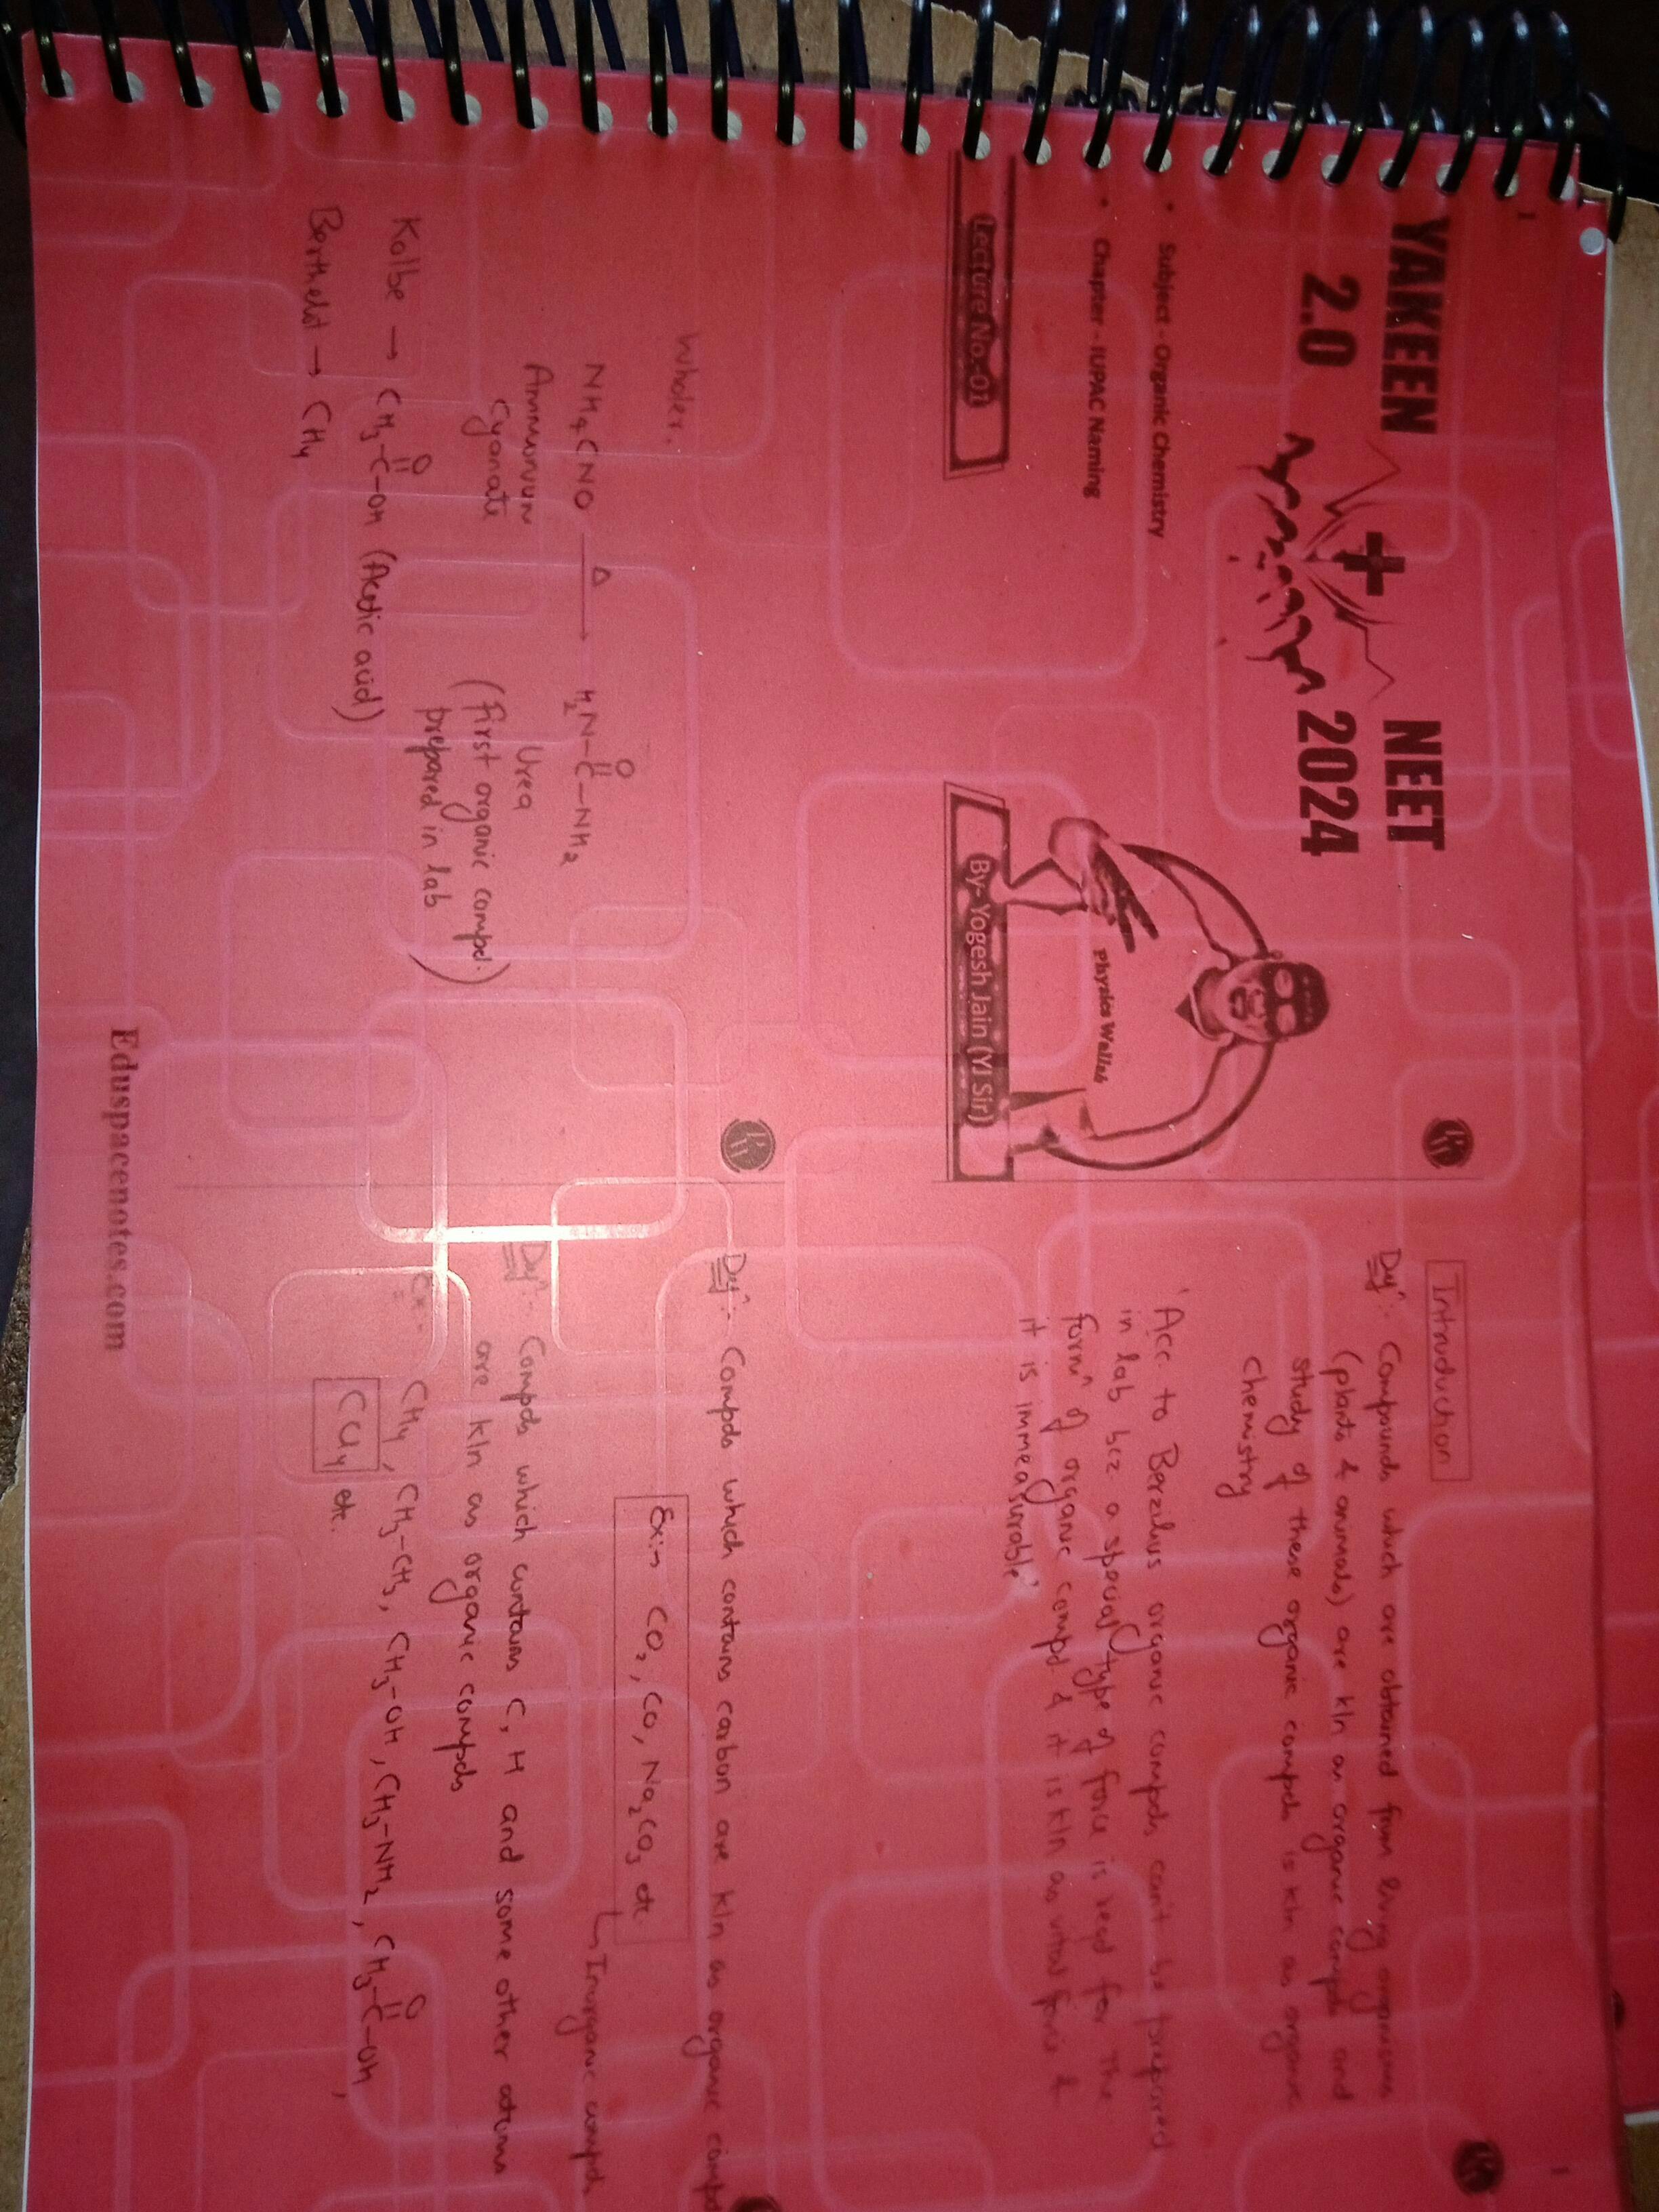 1
YAKEEN NEET
2.0 2024
Subject - Organic Chemistry
Chapter - IUPAC Naming
Physics Wallah
Lecture No.-01
By- Yogesh Jain (YJ Sir)
Introduction
Defⁿ:- Compounds which are obtained from living organisms
(plants & animals) are kln as organic compds and
study of these organic compds is kln as organic
chemistry
'Acc. to Berzelius organic compds can't be prepared
in lab bcz a special type of force is reqd for the
formⁿ of organic compd. & it is kln as vital force &
it is immeasurable'
Wholer.
NH₄CNO —Δ→ H₂N-C(=O)-NH₂
Ammonium Cyanate
Urea
(First organic compd.
prepared in lab)
Kolbe → CH₃-C(=O)-OH (Acetic acid)
Berthelot → CH₄
Defⁿ:- Compds which contains carbon are kln as organic compds
Ex:→ CO₂, CO, Na₂CO₃ etc.
↳ Inorganic compds
Defⁿ:- Compds which contains C, H and some other atoms
are kln as organic compds
Ex:- CH₄, CH₃-CH₃, CH₃-OH, CH₃-NH₂, CH₃-C(=O)-OH,
CCl₄ etc.
Eduspacenotes.com
1